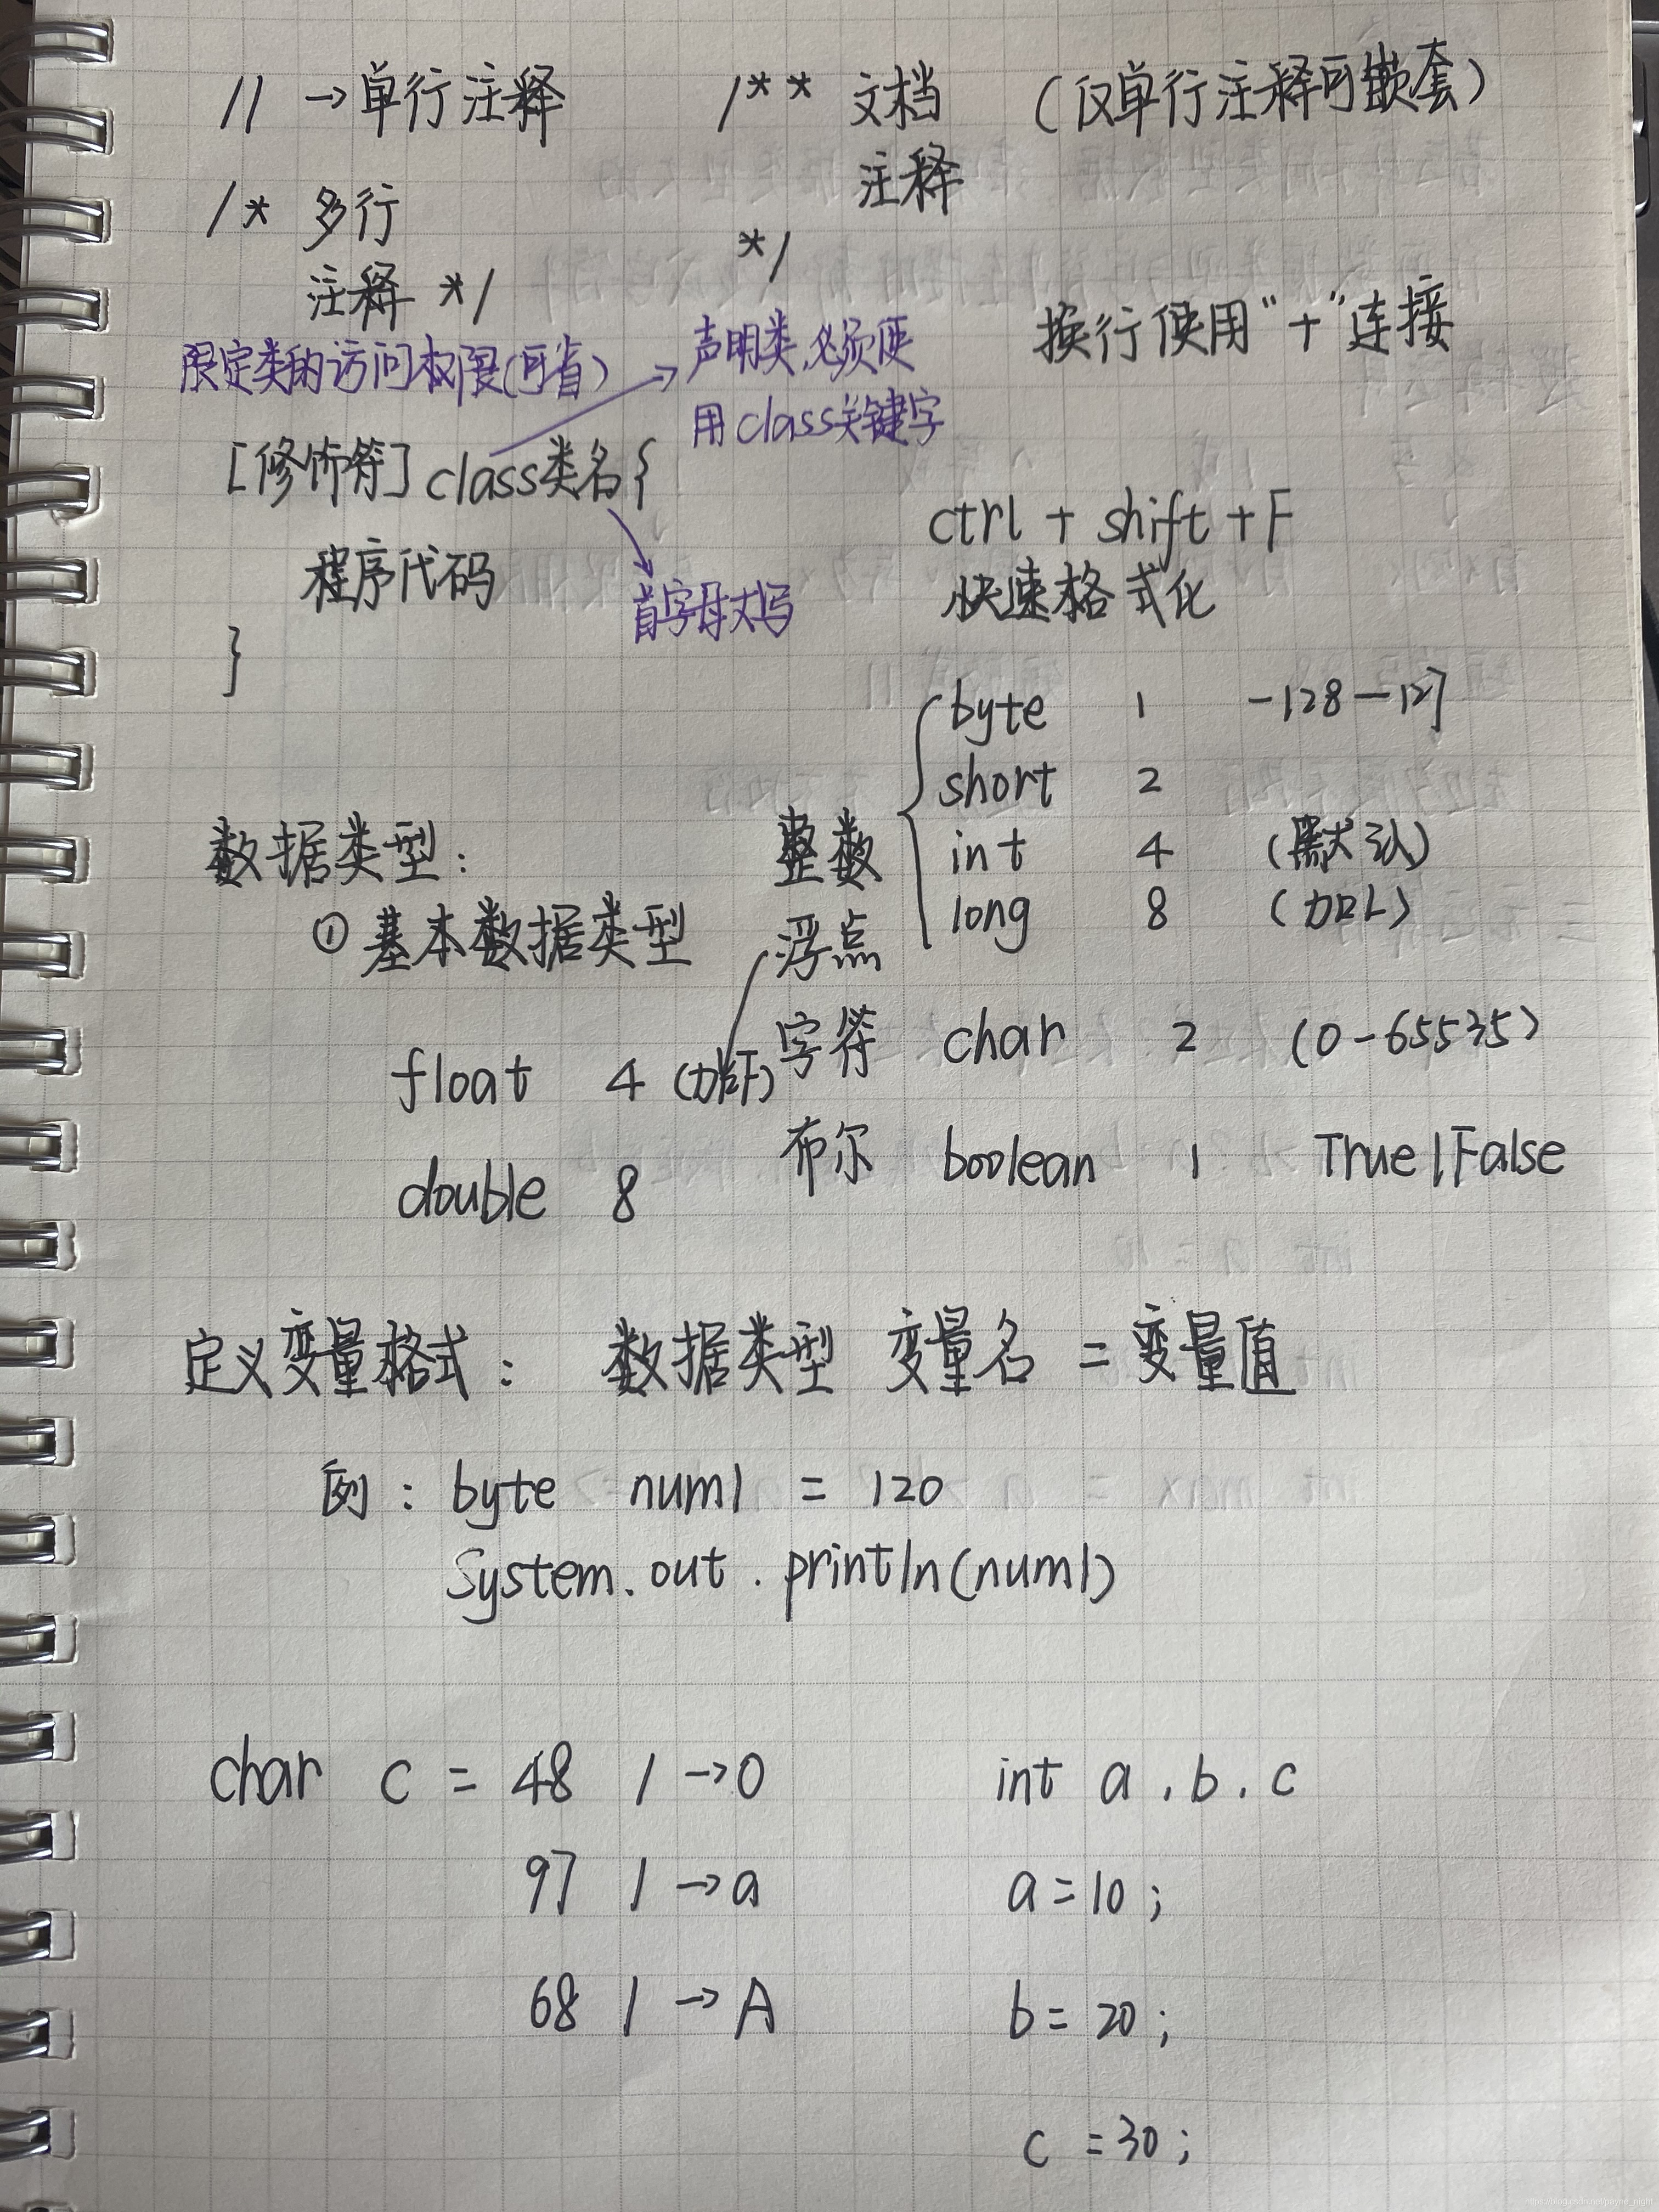 // →单行注释 /** 文档 (仅单行注释可嵌套)
注释
/* 多行
*/
注释 */
换行使用“+”连接
限定类的访问权限(可省)
声明类,必须使
用class关键字
[修饰符] class类名{
首字母大写
程序代码
}
ctrl + shift + F
快速格式化
数据类型:
① 基本数据类型
整数
byte 1 -128—127
short 2
int 4 (默认)
long 8 (加L)
浮点
float 4 (加F)
double 8
字符 char 2 (0-65535)
布尔 boolean 1 True|False
定义变量格式: 数据类型 变量名 = 变量值
例: byte num1 = 120
System.out.println(num1)
char c = 48 / →0
97 / →a
68 / →A
int a,b,c
a=10;
b=20;
c=30;